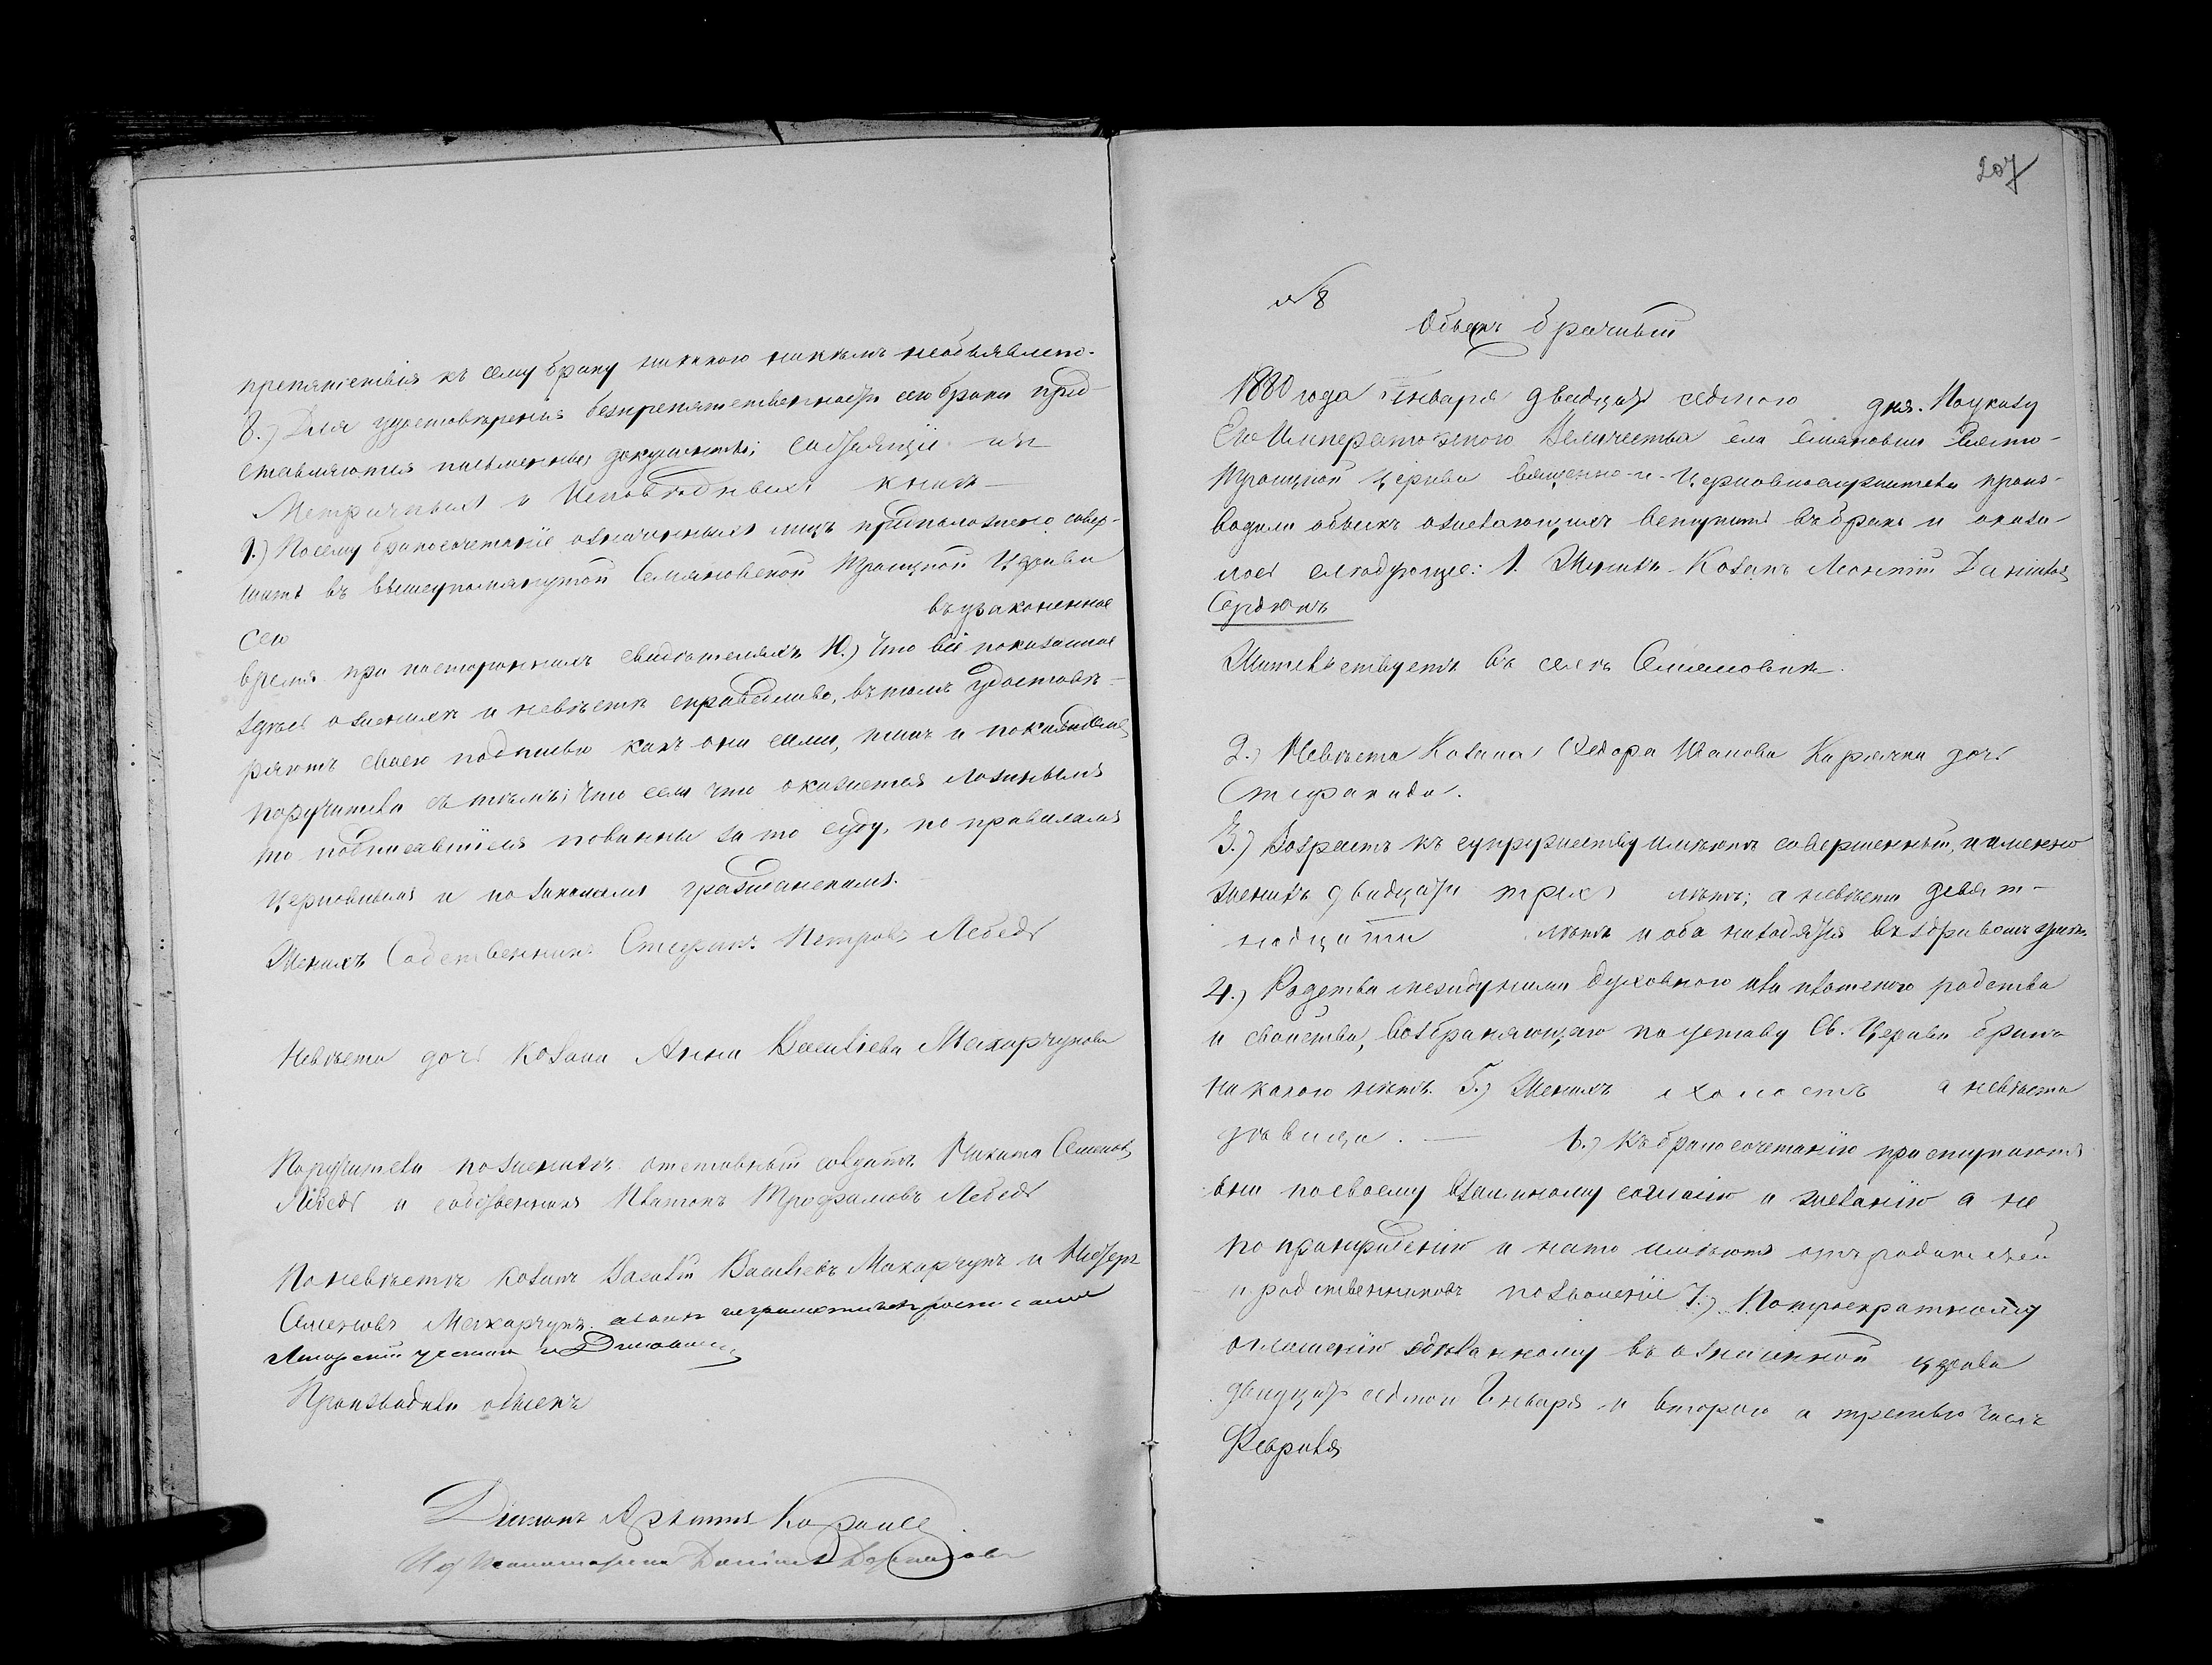 препятствія къ сему браку никакого никѣмъ необъявлено.
8.) Для удостовѣренія безпрепятственности сего брака пред-
ставляются письменные документы; состоящіе изъ
Метричныхъ и Исповѣдныхъ книгъ
9.) Посему бракосочетаніе означенныхъ лицъ предположено совер-
шить въ вышеупомянутой Семяновской Троицкой Церкви
сего въ узаконенное
время при постороннихъ свидѣтеляхъ 10.) Что всё показанное
здѣсь о женихѣ и невѣстѣ справедливо, въ томъ удостовѣ-
ряютъ своею подписью какъ они сами, такъ и по каждому
поручители съ тѣмъ; что если что окажется ложнымъ
то подписавшіеся повинны за то суду, по правиламъ
церковнымъ и по законамъ гражданскимъ.
Женихъ Собственникъ Стефанъ Петровъ Лебедь
Невѣста дочь козака Анна Васильева Махарчукова
Поручители по женихѣ отставный солдатъ Никита Семеновъ
Лебедь и собственникъ Платонъ Трофимовъ Лебедь
По невѣстѣ козакъ Василій Васильевъ Махарчукъ и
Семеновъ Махарчукъ а за ихъ неграмотныхъ росписался
Производили обыскъ
Діаконъ
Даніилъ
207
№ 8
Обыскъ брачный
1880 года Января двадцать седьмого дня. По указу
Его Императорскаго Величества села Семяновки Свято-
Троицкой церкви Священно-и-Церковнослужители произ-
водили обыскъ о желающихъ вступить въ бракъ и оказа-
лось слѣдующее: 1. Женихъ Козакъ Леонтій Даниловъ
Сердюкъ
Жительствуетъ въ селѣ Семяновкѣ.
2.) Невѣста Козака Ѳедора Иванова Карячки дочь
Стефанида.
3.) Возрастъ къ супружеству имѣютъ совершенный, и именно
женихъ двадцати трехъ лѣтъ; а невѣста девят-
надцати лѣтъ и оба находятся въ здравомъ умѣ.
4.) Родства между ними духовнаго или плотскаго родства
и свойства, возбраняющаго по уставу Св. Церкви бракъ
никакого нѣтъ. 5.) Женихъ холостъ а невѣста
дѣвица. 6.) Къ бракосочетанію приступаютъ
они по своему взаимному согласію и желанію а не
по принужденію и на то имѣютъ отъ родителей
и родственниковъ позволеніе 7.) По троекратному
оглашенію сдѣланному въ означенной церкви
двадцать седьмого Января и второго и третьего числъ
Февраля